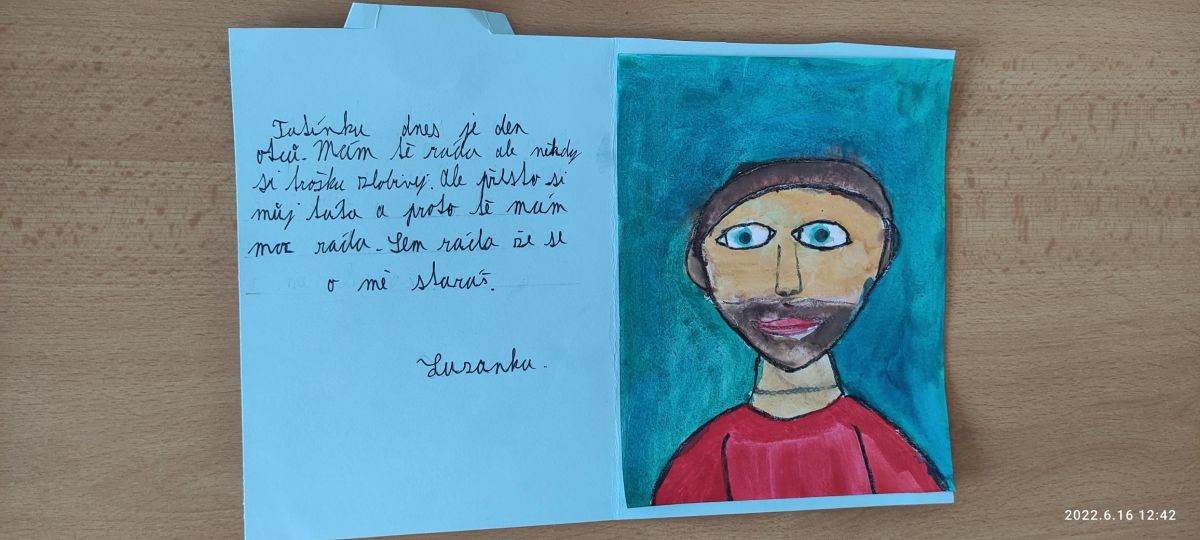 Tatínku dnes je den
otců. Mám tě ráda ale někdy
si trošku zlobivý. Ale přesto si
můj tata a proto tě mám
moc ráda. Sem ráda že se
o mě staráš.
Zuzanka.
2022.6.16 12:42